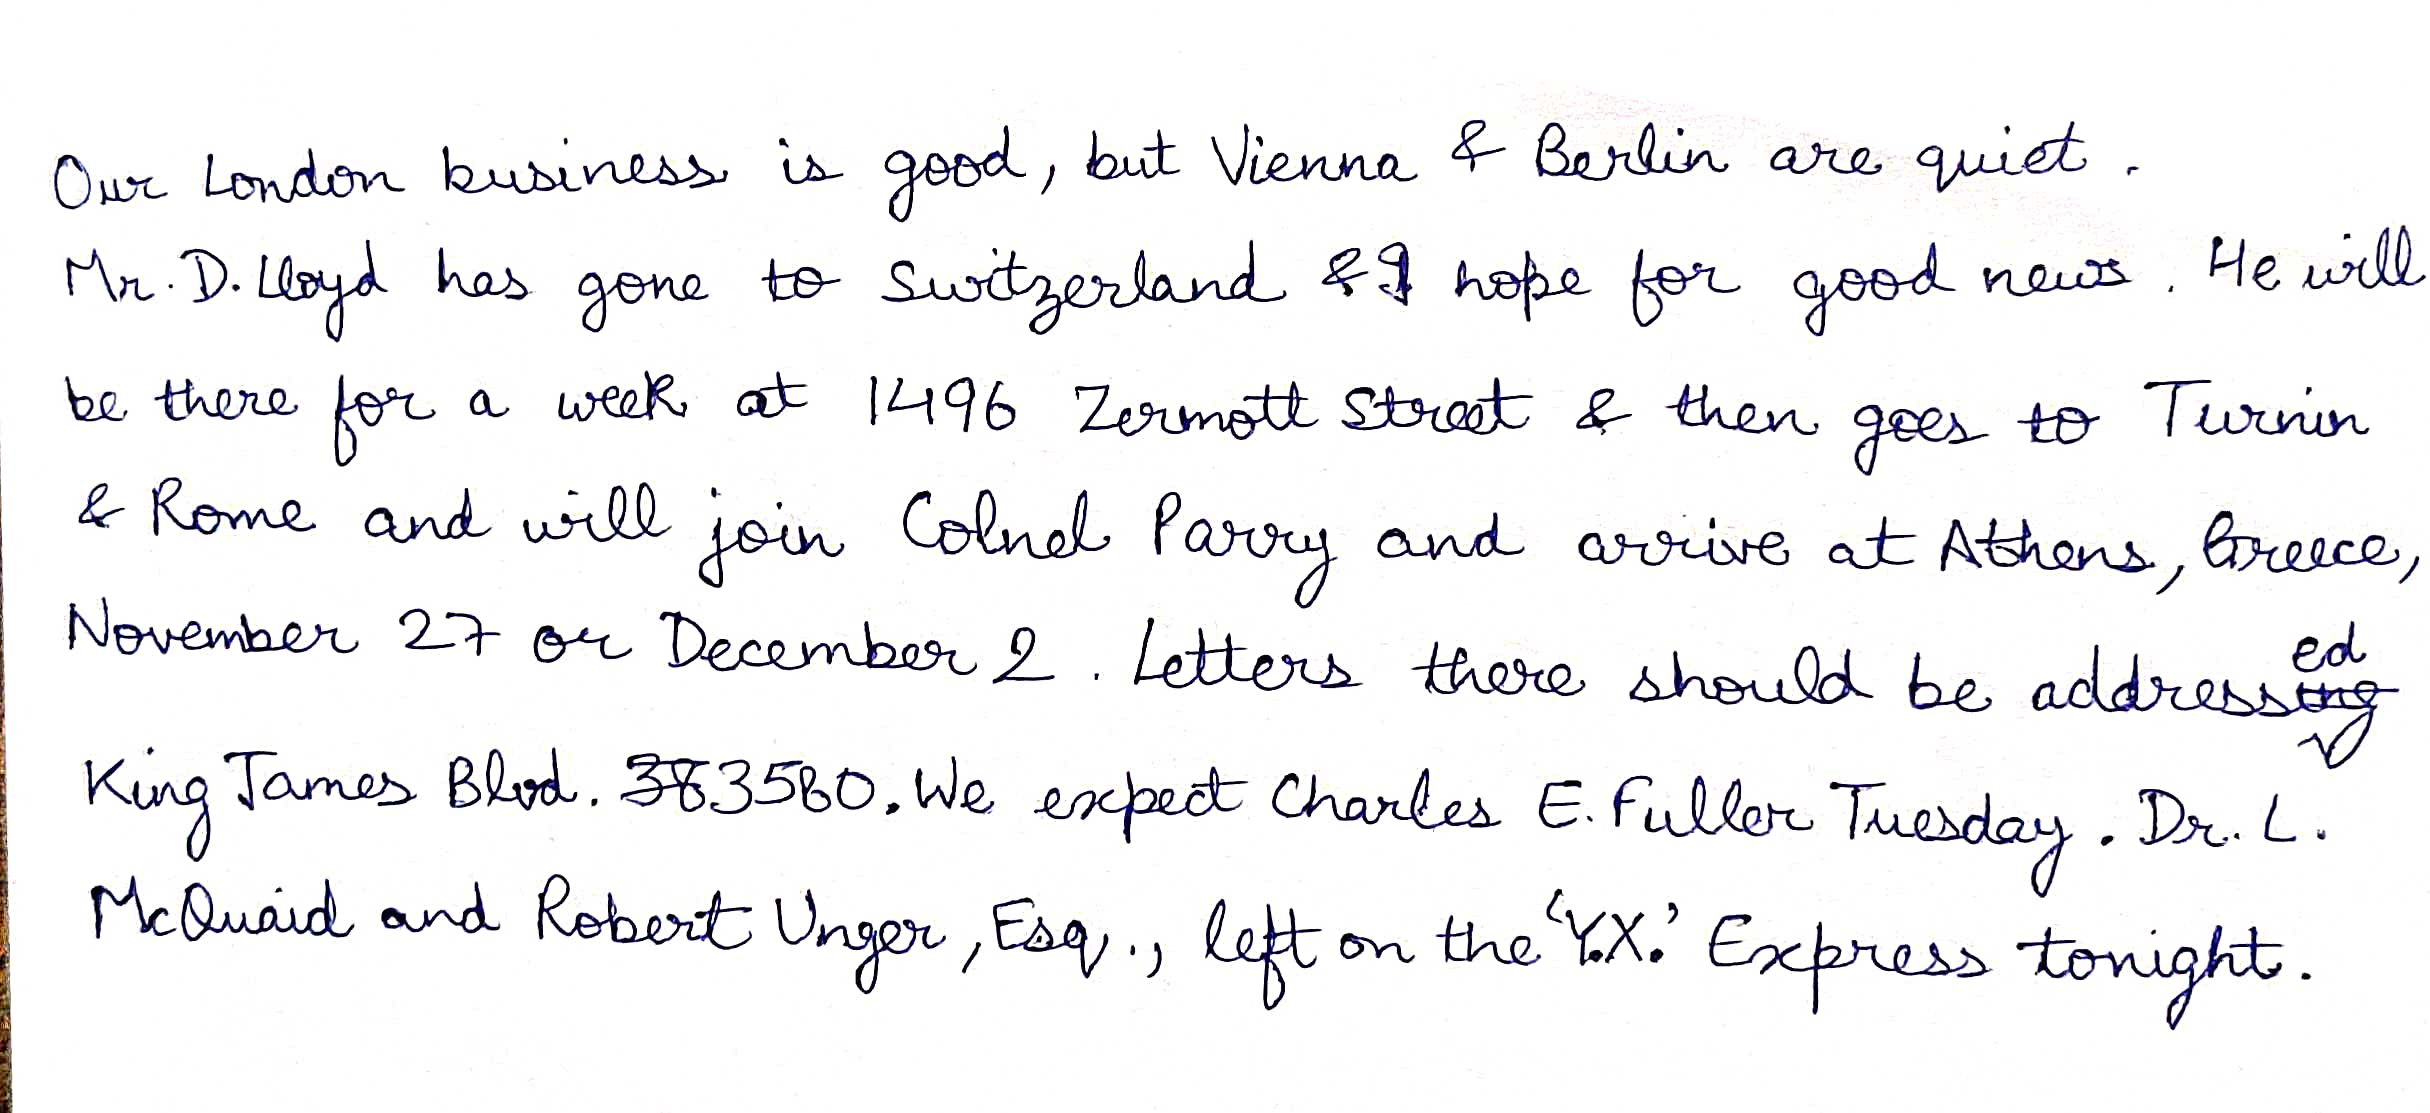 Our London business is good, but Vienna & Berlin are quiet.
Mr. D. Lloyd has gone to Switzerland & I hope for good news. He will
be there for a week at 1496 Zermott Street & then goes to Turnin
& Rome and will join Colnel Parry and arrive at Athens, Greece,
November 27 or December 2. Letters there should be addressed
King James Blvd. 383580. We expect Charles E. Fuller Tuesday. Dr. L.
McQuaid and Robert Unger, Esq., left on the 'Y.X.' Express tonight.